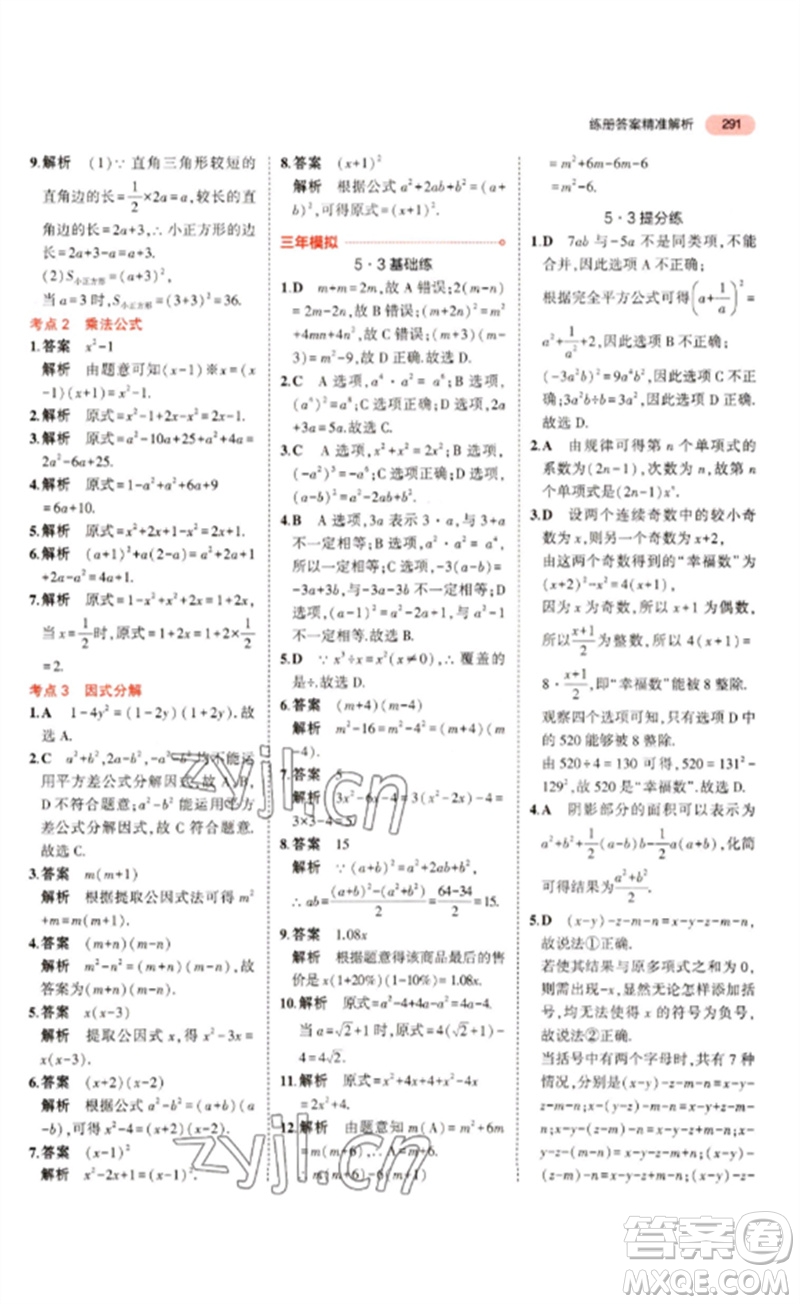 练册答案精准解析 291
9.解析 (1)∵直角三角形较短的
直角边的长=1/2×2a=a,较长的
直角边的长=a+3,∴小正方形的
边长=2a+3-a=a+3.
(2)S小正方形=(a+3)²,
当a=3时,S小正方形=(3+3)²=36.
考点2 乘法公式
1.答案 x²-1
解析 由题意可知(x-1)※x=(x-
2.解析 原式=x²-1+2x-x²=2x-1.
3.解析 原式=a²-10a+25+a²+4a=
2a²-6a+25.
4.解析 原式=1-a²+a²+6a+9
=6a+10.
5.解析 原式=x²+2x+1-x²=2x+1.
6.解析 (a+1)²+a(2-a)=a²+
2a+1+2a-a²=4a+1.
7.解析 原式=1-x²+x²+2x=1+2x,
当x=1/2时,原式=1+2x=1+2×1/2
=2.
考点3 因式分解
1.A 1-4y²=(1-2y)(1+2y).故
选A.
用平方差公式分解因式,故A,B,
D不符合题意;a²-b²能运用平方
差公式分解因式,故C符合题意.
故选C.
3.答案 m(m+1)
解析 根据提取公因式法可得m²
+m=m(m+1).
4.答案 (m+n)(m-n)
解析 m²-n²=(m+n)(m-n),故
答案为(m+n)(m-n).
5.答案 x(x-3)
解析 提公因式x,得x²-3x=
x(x-3).
6.答案 (x+2)(x-2)
解析 根据公式a²-b²=(a+b)(a
-b),得x²-4=(x+2)(x-2).
7.答案 (x-1)²
解析 x²-2x+1=(x-1)².
8.答案 (x+1)²
解析 根据公式a²+2ab+b²=(a+
b)²,可得原式=(x+1)².
三年模拟
5·3基础练
1.D m+m=2m,故A错误;2(m-n)
=2m-2n,故B错误;(m+2)²=m²
+4m+4,故C错误;(m+3)(m-3)
=m²-9,故D正确.故选D.
+3a=5a.故选C.
3.C A选项,x²+x²=2x²;B选项,
(a-b)²=a²-2ab+b².
4.B A选项,3a表示3·a,与3+a
不一定相等;C选项,-3(a-b)=
-3a+3b,与-3a-3b不一定相等;D
选项,(a-1)²=a²-2a+1,与a²-1
不一定相等.故选B.
5.D ∵x³÷x=x²(x≠0),∴覆盖的
是÷.故选D.
6.答案 (m+4)(m-4)
解析 m²-16=m²-4²=(m+4)(m
-4).
7.答案 5
解析 3x²-6x-4=3(x²-2x)-4=
3×3-4=5.
8.答案 15
解析 ∵(a+b)²=a²+2ab+b²,
∴ab=((a+b)²-(a²+b²))/2=(64-34)/2=15.
9.答案 1.08x
解析 根据题意得该商品最后的售
价是x(1+20%)(1-10%)=1.08x.
10.解析 原式=a²-4+4a-a²=4a-4.
当a=√2+1时,原式=4(√2+1)-
4=4√2.
11.解析 原式=x²+4x+4+x²-4x
=2x²+4.
12.解析 由题意知m(A)=m²+6m
=m(m+6),∴A=m+6.
=m²+6m-6m-6
=m²-6.
5·3提分练
1.D 7ab与-5a不是同类项,不能
合并,因此选项A不符合题意;
根据完全平方公式可得(a+1/a)²=
a²+1/a²+2,因此选项B不符合题意;
(-3a²b)²=9a⁴b²,因此选项C不
符合题意;
故选D.
2.A 由规律可得第n个单项式的
系数为(2n-1),次数为n,故第n
个单项式是(2n-1)xⁿ.
3.D 设两个连续奇数中的较小奇
数为x,则另一个奇数为x+2,
由这两个奇数得到的“幸福数”为
因为x为奇数,所以x+1为偶数,
所以(x+1)/2为整数,所以4(x+1)=
8·(x+1)/2,即“幸福数”能被8整除.
观察四个选项可知,只有选项D中
的520能够被8整除.
由520÷4=130可得,520=131²-
129²,故选D.
4.A 阴影部分的面积可以表示为
a²+b²+1/2(a-b)b-1/2a(a+b),化简
可得结果为(a²+b²)/2.
5.D (x-y)-z-m-n=x-y-z-m-n,
故说法①正确.
若使其结果与原多项式之和为0,
则需出现-x,显然无论怎么添加括
号,均无法使x的符号为负号,
故说法②正确.
当括号中有两个字母时,共有7种
情况,分别是(x-y)-z-m-n=x-y
-z-m-n、x-(y-z)-m-n=x-y+z-
zyjl.cn
zyjl.cn
答案圈
MXQE.COM